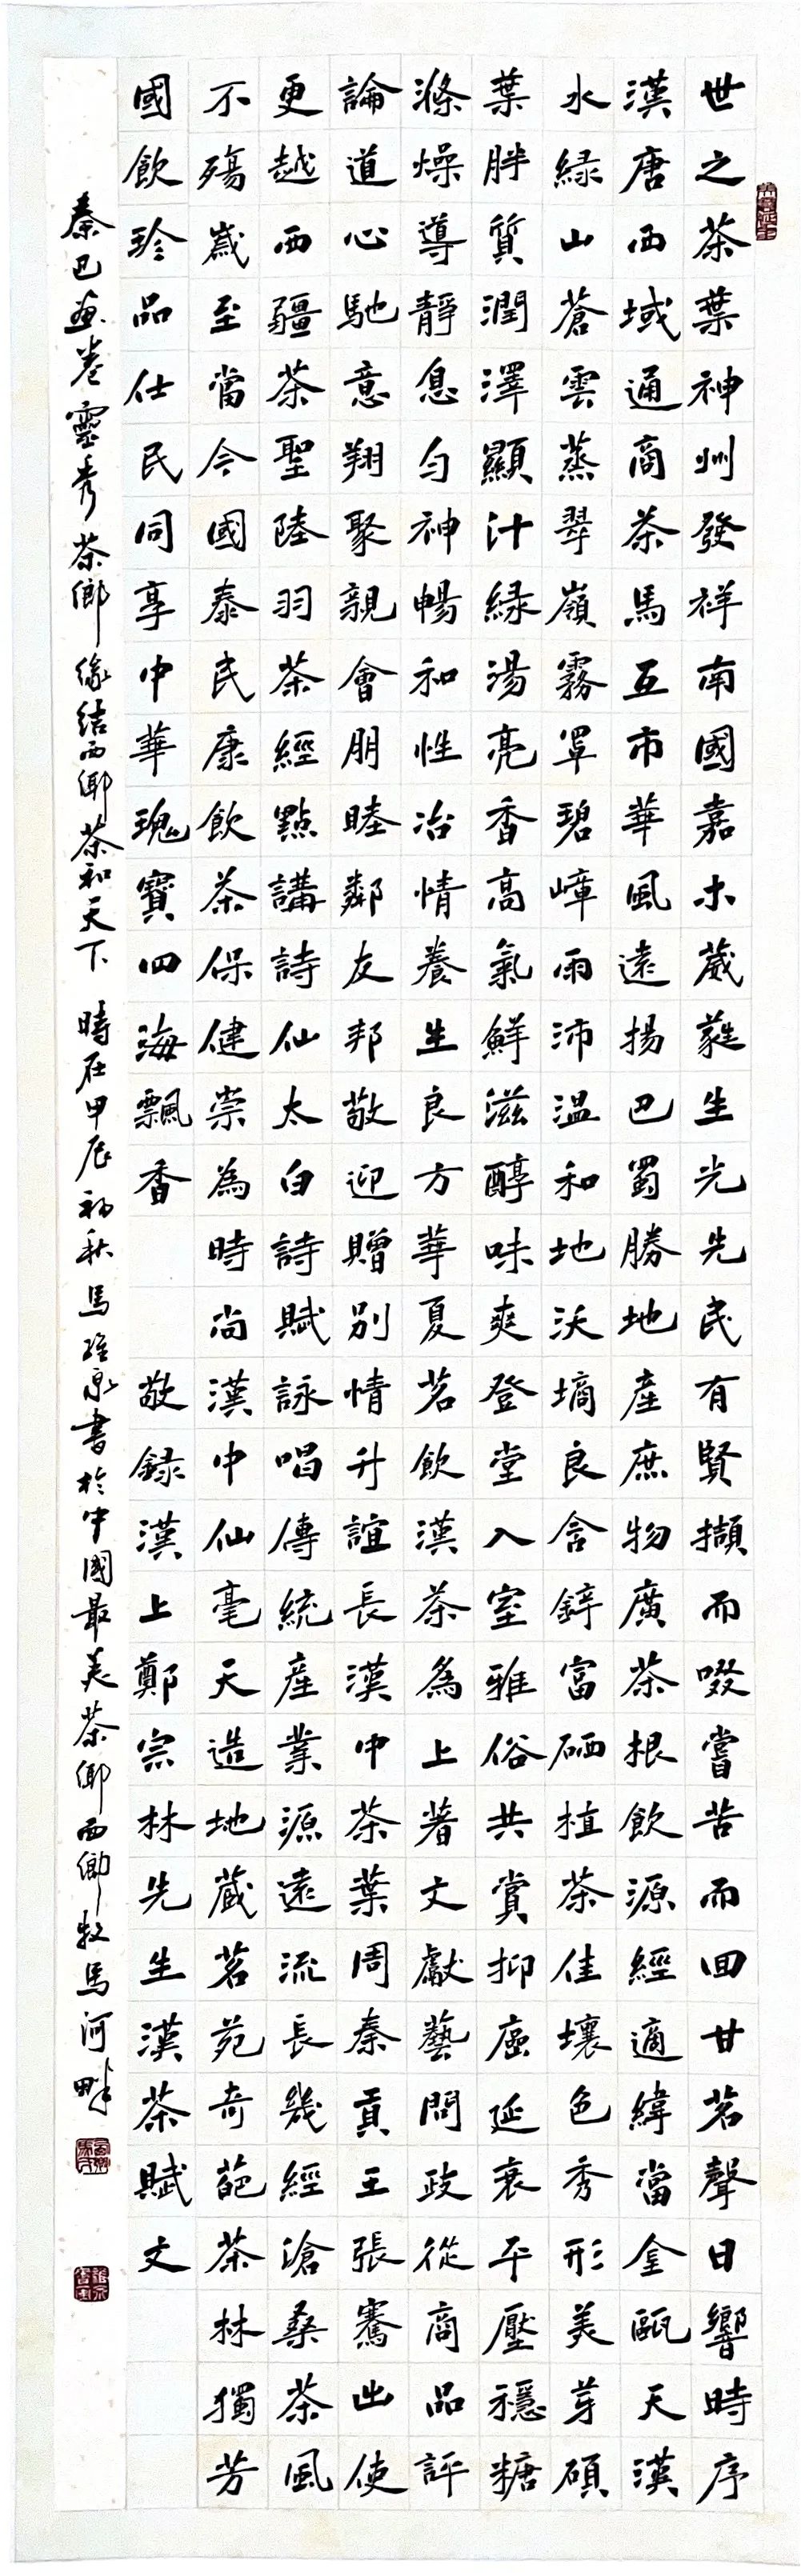 世之茶葉神州發祥南國嘉木葳蕤生光先民有賢擷而啜嘗苦而回甘茗聲日響時序
漢唐西域通商茶馬互市華風遠揚巴蜀勝地產庶物廣茶根飲源經適緯當金甌天漢
水緑山蒼雲蒸翠嶺霧罩碧嶂雨沛温和地沃墒良含鋅富硒植茶佳壤色秀形美芽碩
葉胖質潤澤顯汁緑湯亮香高氣鮮滋醇味爽登堂入室雅俗共賞抑癌延衰平壓穩糖
滌燥導靜息勻神暢和性冶情養生良方華夏茗飲漢茶為上著文獻藝問政從商品評
論道心馳意翔聚親會朋睦鄰友邦敬迎贈別情升誼長漢中茶葉周秦貢王張騫出使
更越西疆茶聖陸羽茶經點講詩仙太白詩賦詠唱傳統產業源遠流長幾經滄桑茶風
不殤歲至當今國泰民康飲茶保健崇為時尚漢中仙毫天造地藏茗苑奇葩茶林獨芳
國飲珍品仕民同享中華瑰寶四海飄香 敬録漢上鄭宗林先生漢茶賦文
秦巴畫卷靈秀茶鄉緣結西鄉茶和天下 時在甲辰初秋馬雄泉書於中國最美茶鄉西鄉牧馬河畔